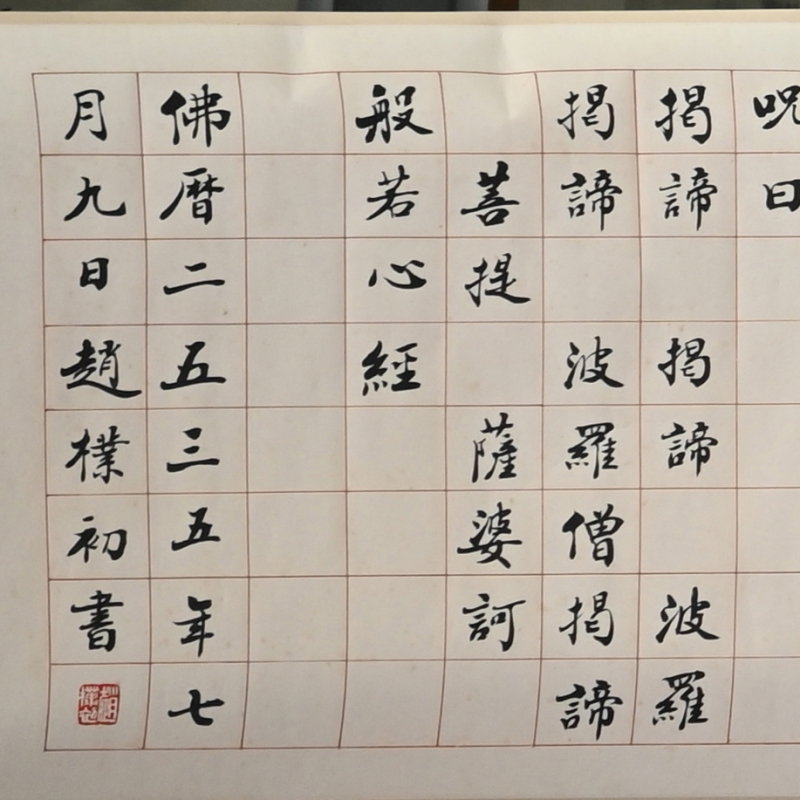 呪曰
揭諦 揭諦 波羅
揭諦 波羅僧揭諦
菩提 薩婆訶
般若心經
佛曆二五三五年七
月九日趙樸初書